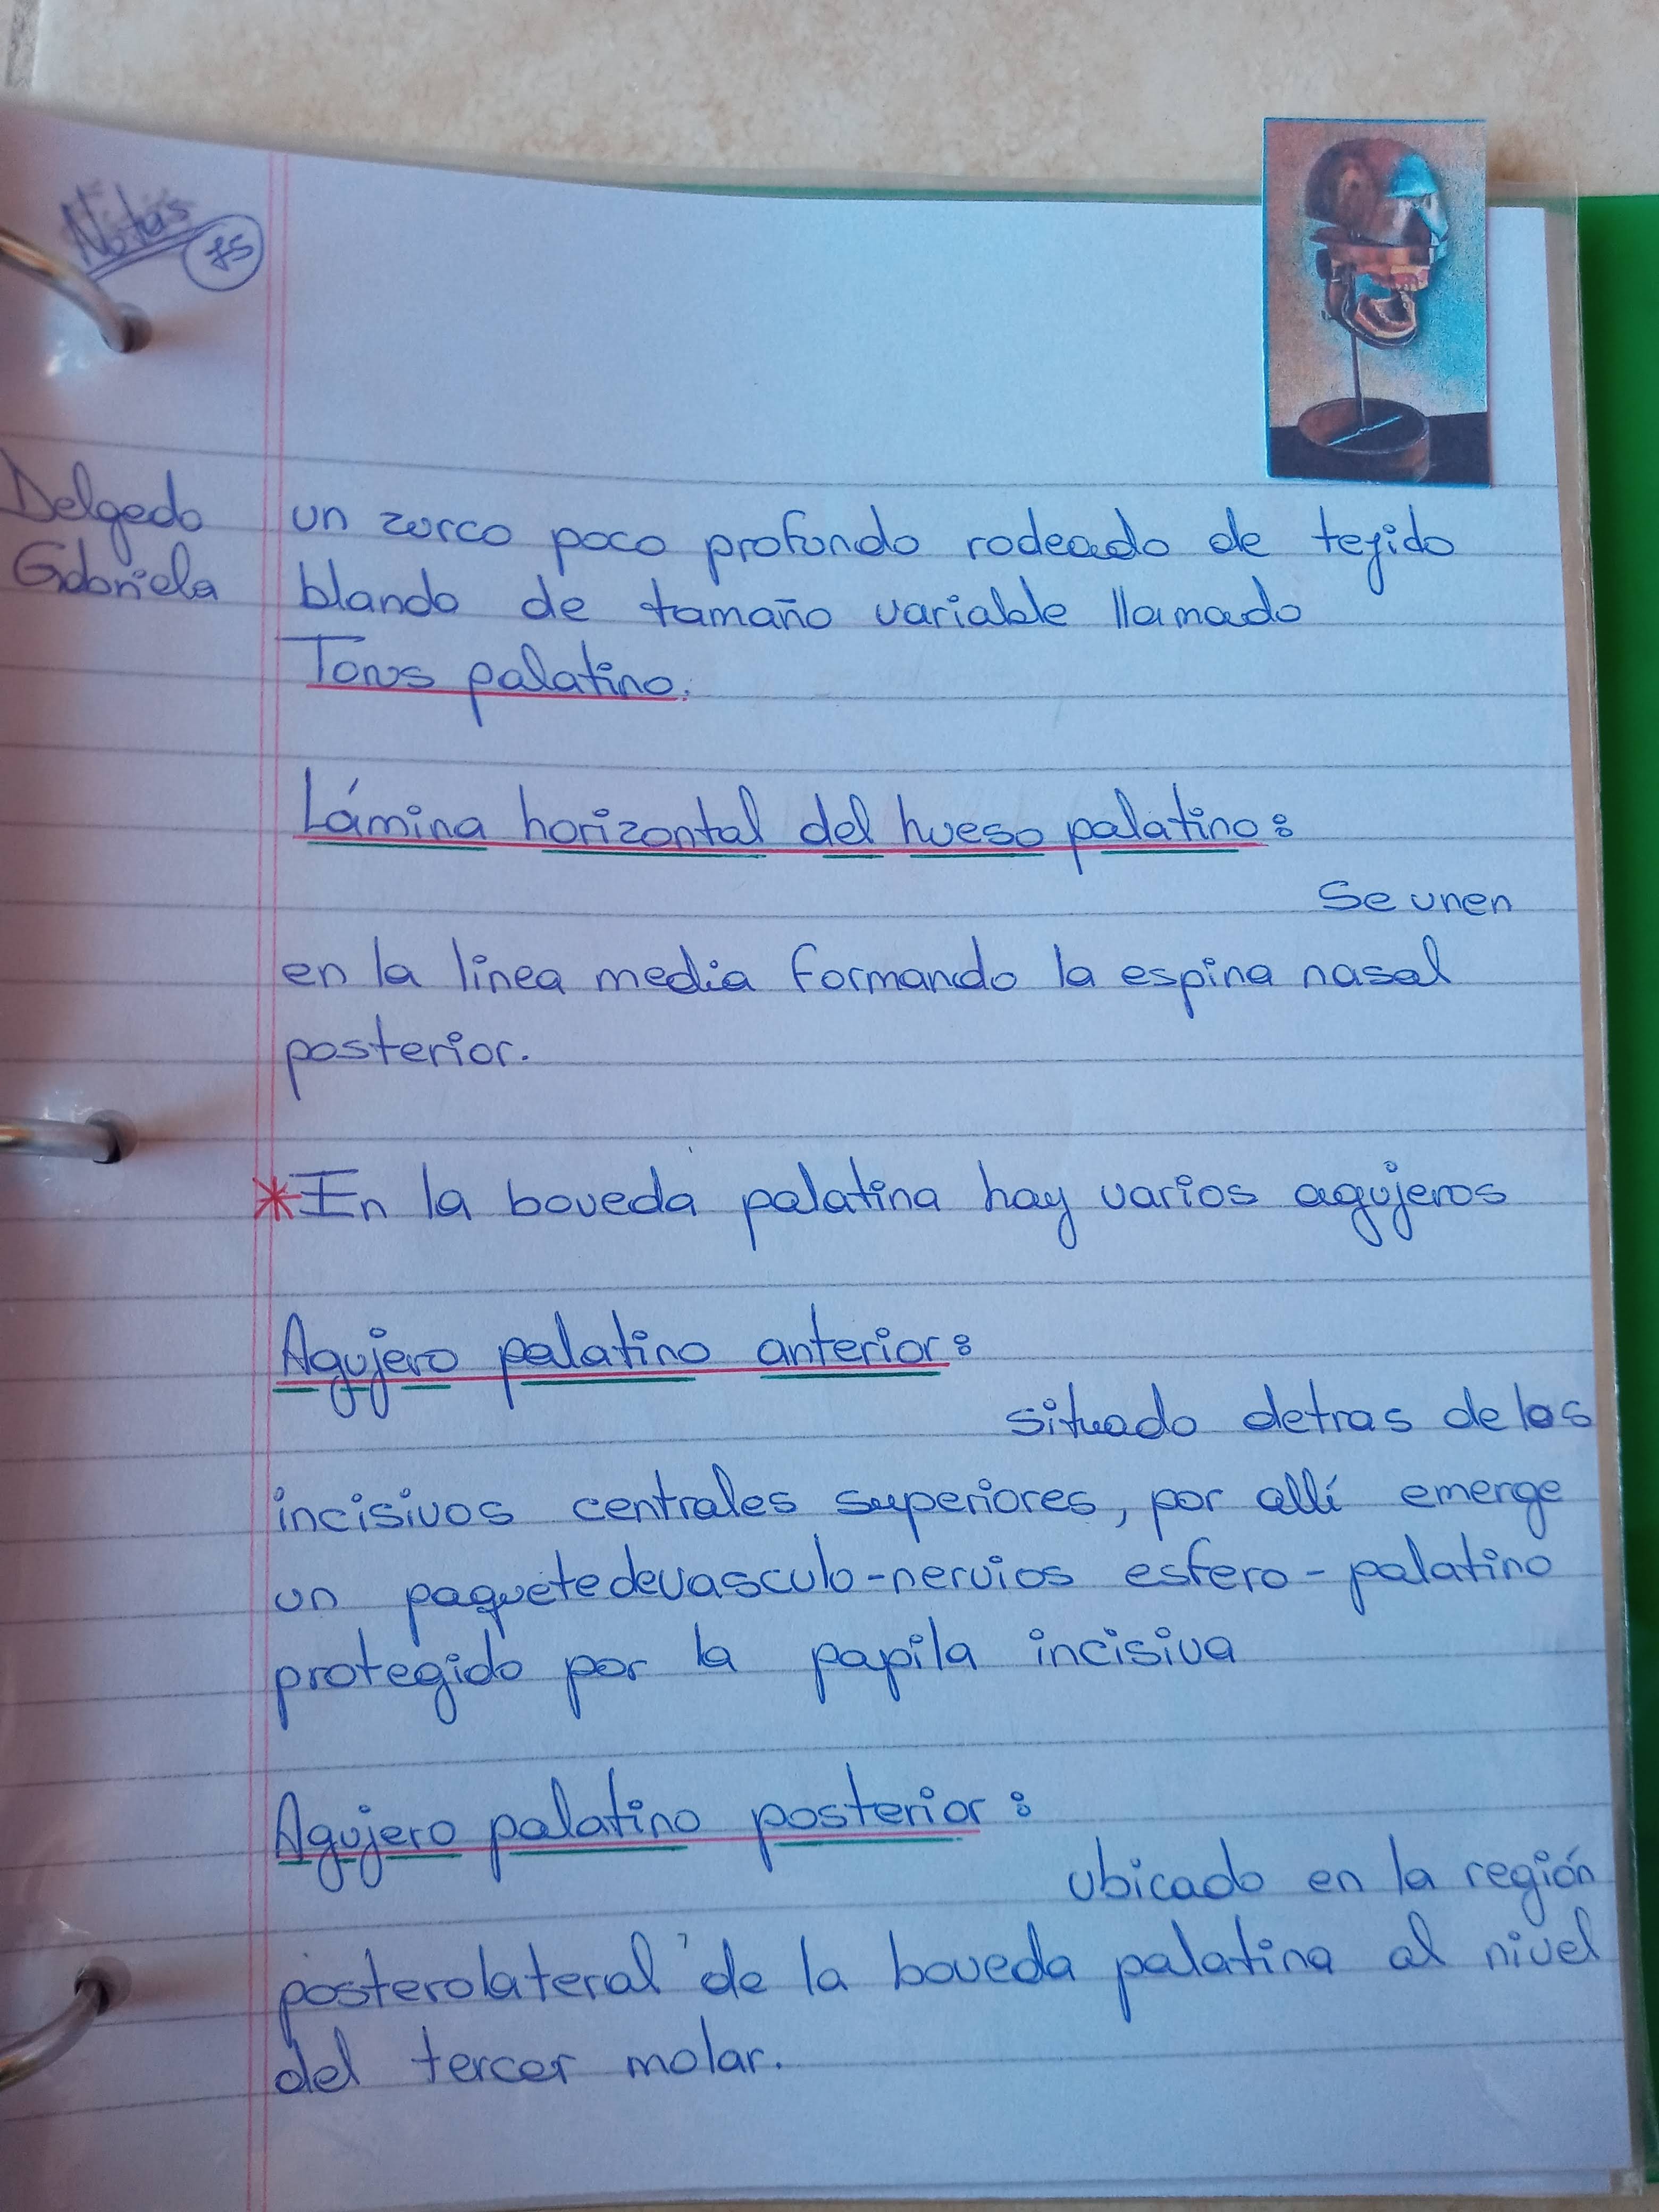 Notas
75
Delgado
Gabriela
un zurco poco profundo rodeado de tejido
blando de tamaño variable llamado
Torus palatino.
Lámina horizontal del hueso palatino:
Se unen
en la linea media formando la espina nasal
posterior.
*En la boveda palatina hay varios agujeros
Agujero palatino anterior:
situado detras de los
incisivos centrales superiores, por allí emerge
un paquete de vasculo-nervios esfero-palatino
protegido por la papila incisiva
Agujero palatino posterior:
ubicado en la región
posterolateral de la boveda palatina al nivel
del tercer molar.